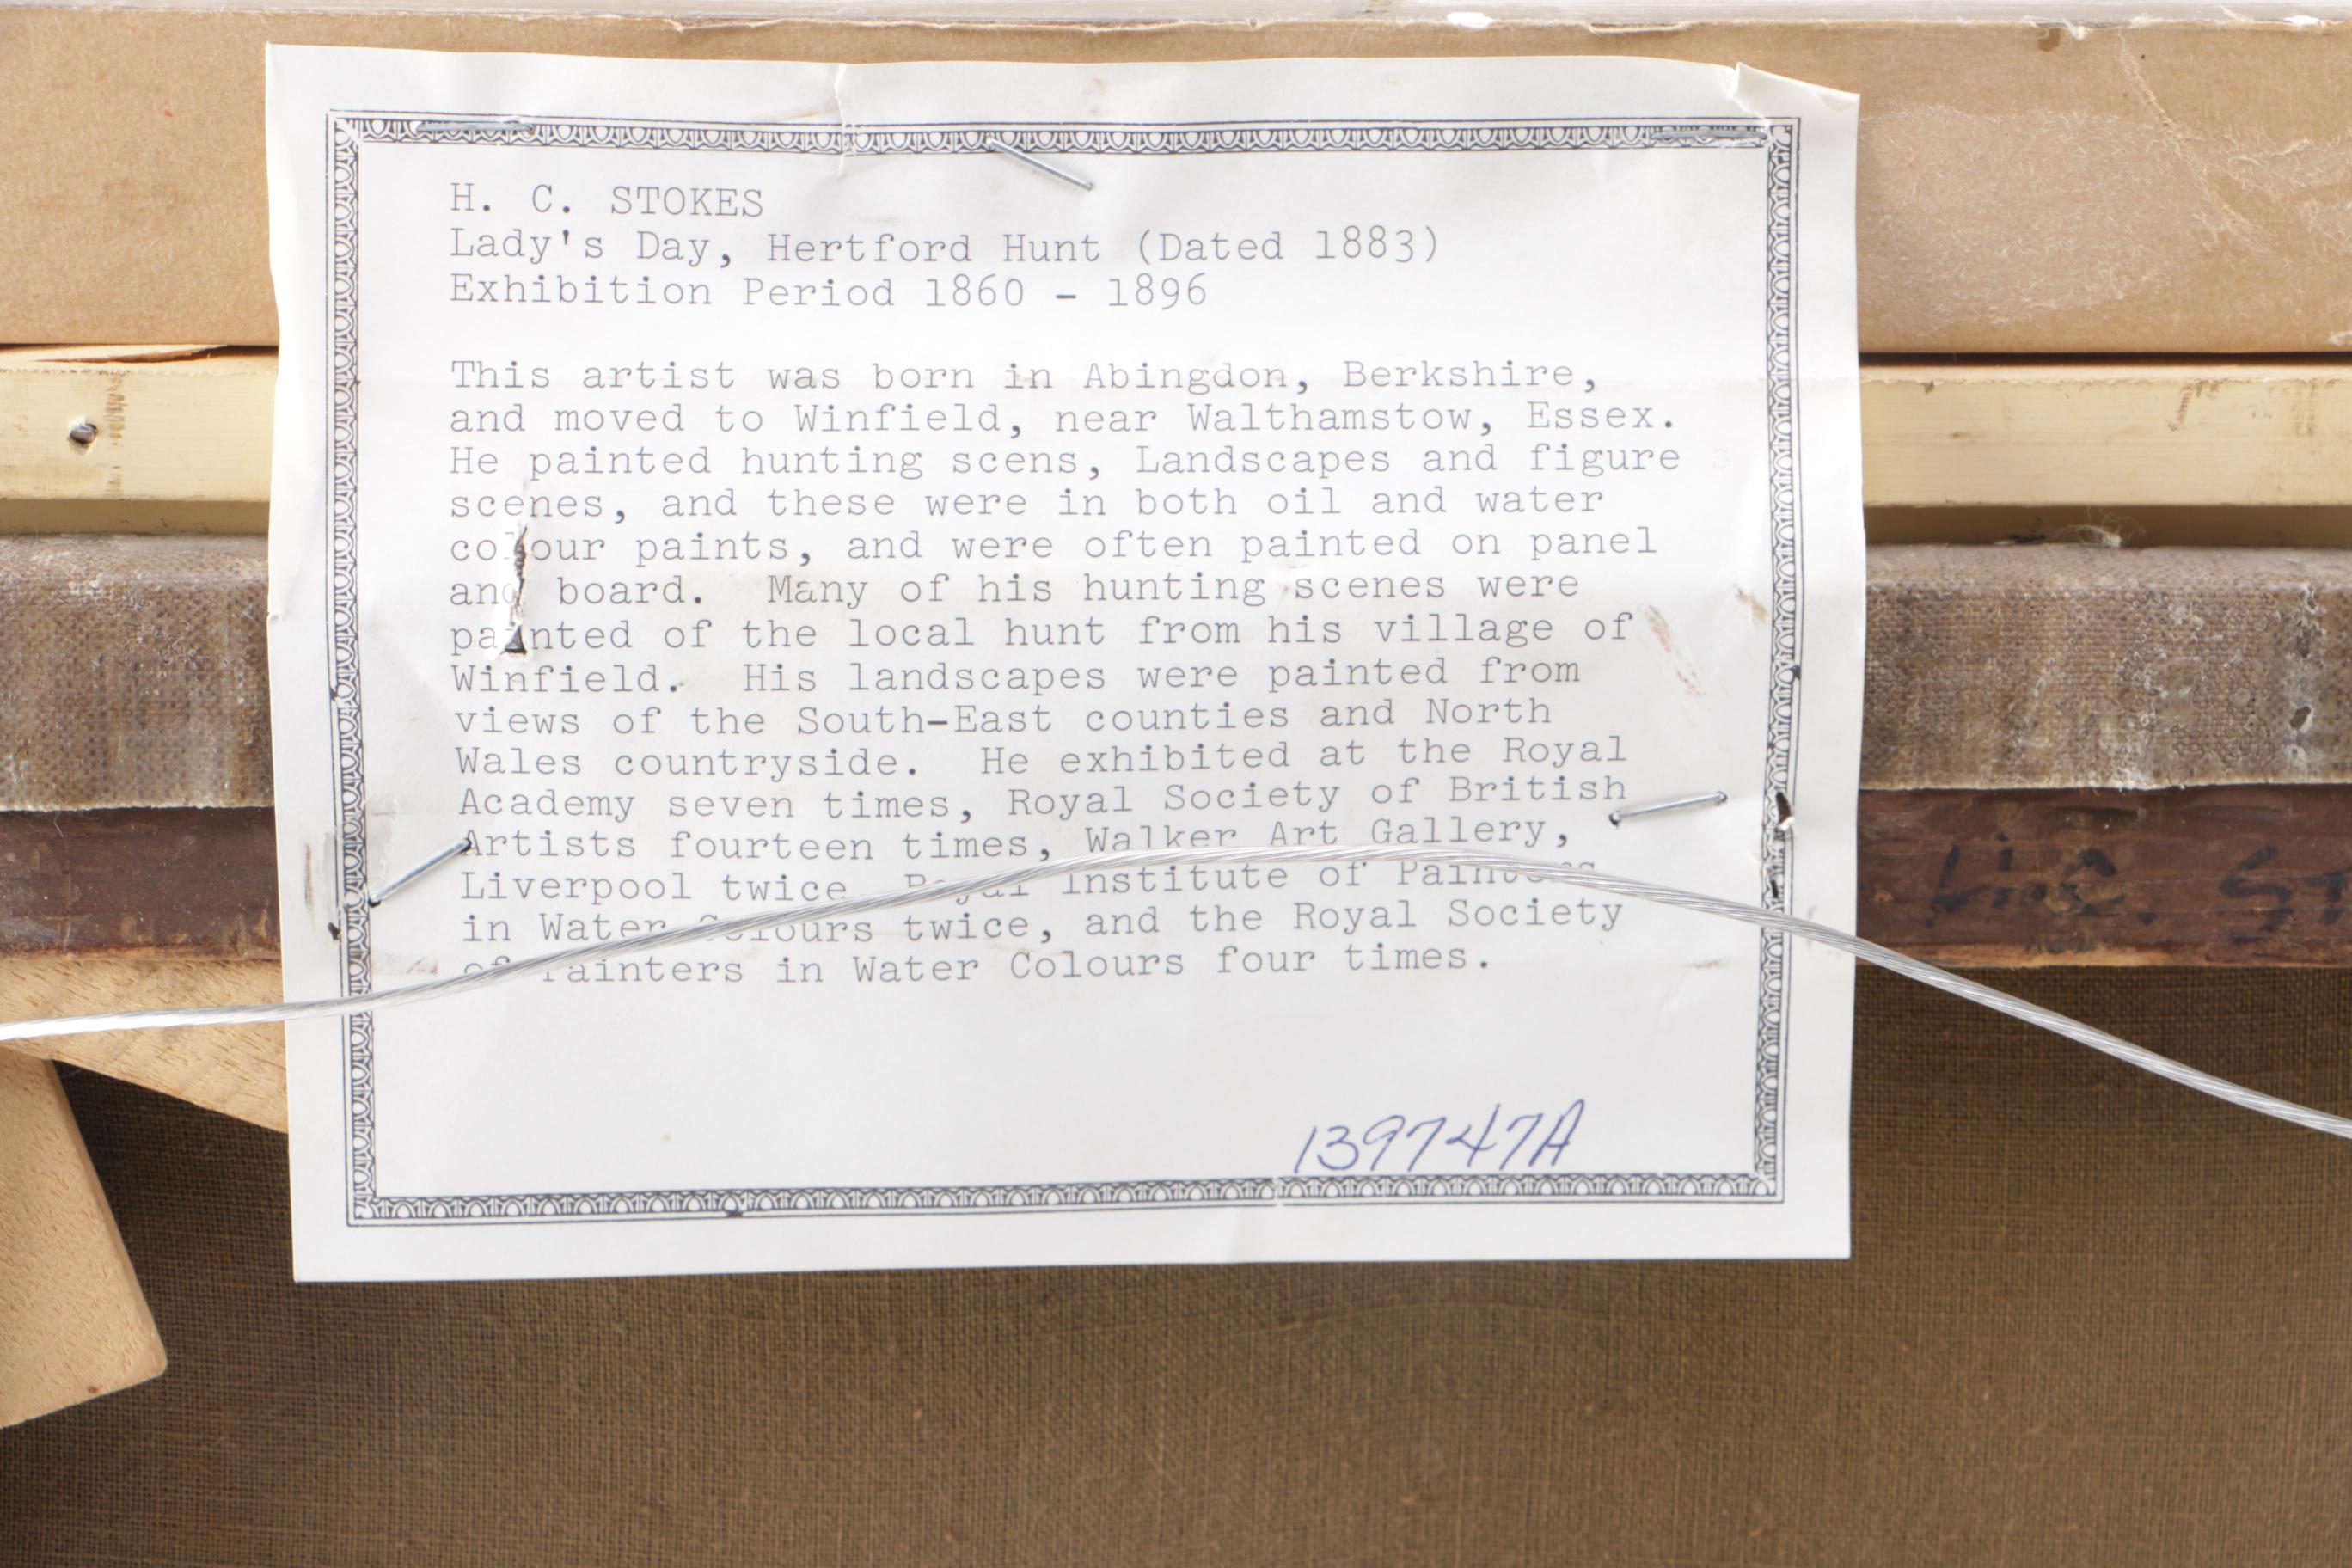 H. C. STOKES
Lady's Day, Hertford Hunt (Dated 1883)
Exhibition Period 1860 - 1896
This artist was born in Abingdon, Berkshire,
and moved to Winfield, near Walthamstow, Essex.
He painted hunting scens, Landscapes and figure
scenes, and these were in both oil and water
colour paints, and were often painted on panel
and board. Many of his hunting scenes were
painted of the local hunt from his village of
Winfield. His landscapes were painted from
views of the South-East counties and North
Wales countryside. He exhibited at the Royal
Academy seven times, Royal Society of British
Artists fourteen times, Walker Art Gallery,
Liverpool twice, Royal Institute of Painters
in Water Colours twice, and the Royal Society
of Painters in Water Colours four times.
139747A
H.C. ST